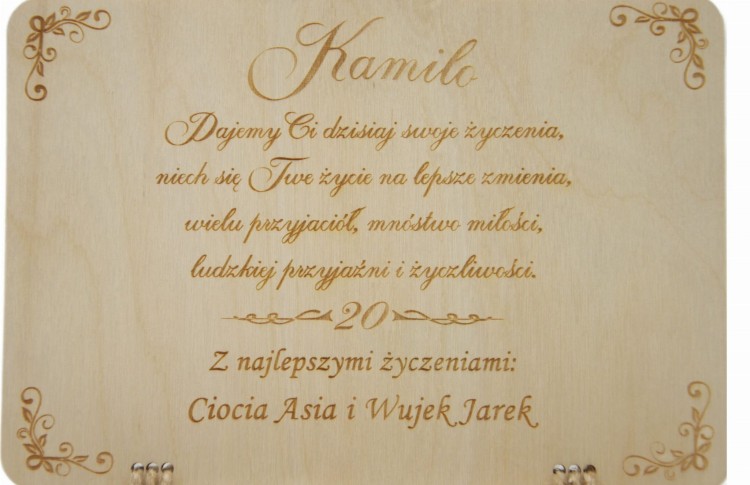 Kamilo
Dajemy Ci dzisiaj swoje życzenia,
niech się Twe życie na lepsze zmienia,
wielu przyjaciół, mnóstwo miłości,
ludzkiej przyjaźni i życzliwości.
20
Z najlepszymi życzeniami:
Ciocia Asia i Wujek Jarek